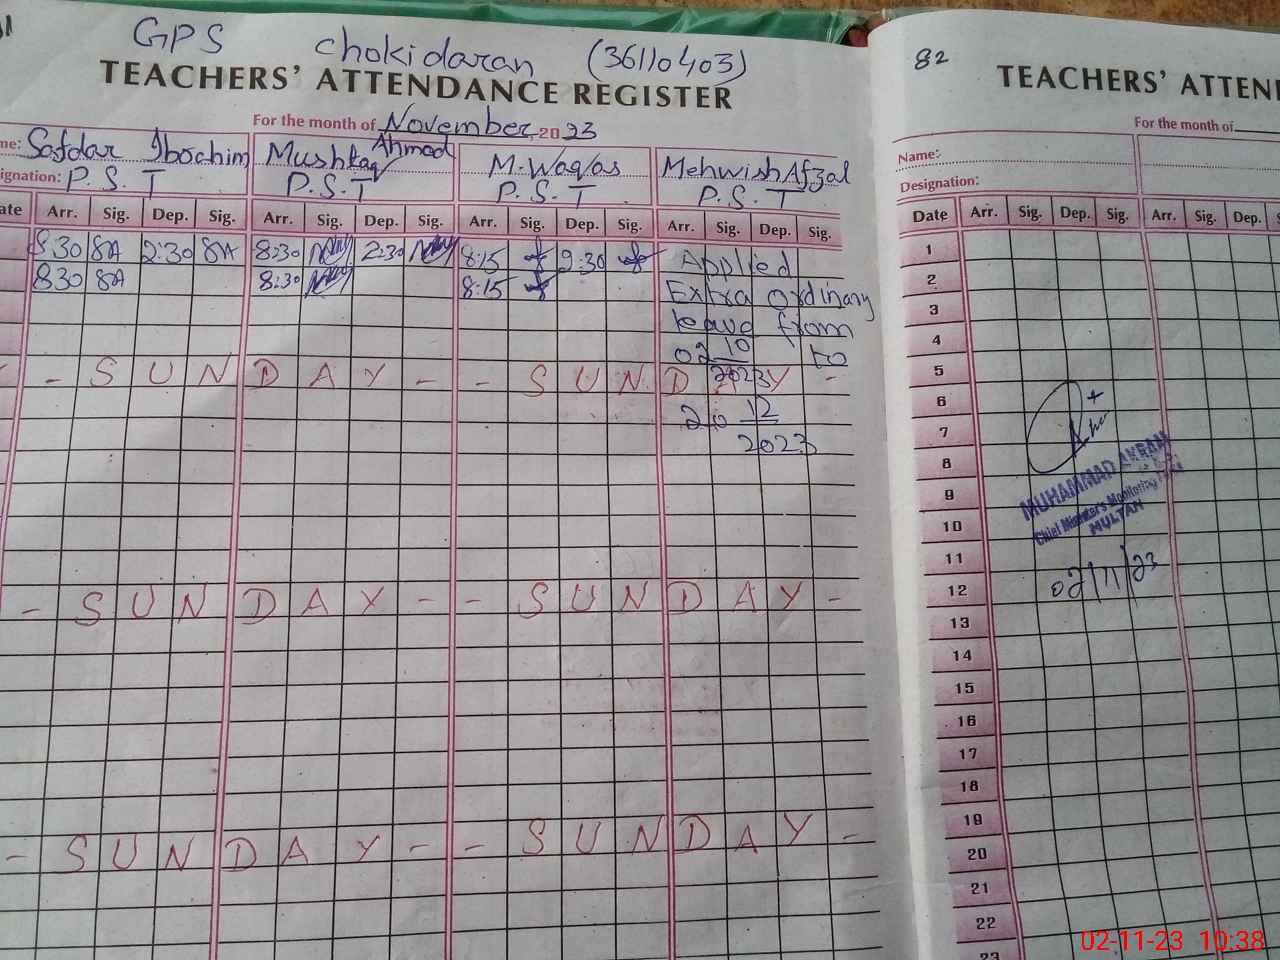 GPS chokidaran (36110403)
TEACHERS' ATTENDANCE REGISTER
For the month of November 2023
me: Safdar Ibrahim Mushtaq Ahmad M. Waqas Mehwish Afzal
signation: P. S. T P. S. T P. S. T P. S. T
ate Arr. Sig. Dep. Sig. Arr. Sig. Dep. Sig. Arr. Sig. Dep. Sig. Arr. Sig. Dep. Sig.
8:30 SA 2:30 SA 8:30 2:30 8:15 2:30 Applied
8:30 SA 8:30 8:15 Extra ordinary
leave from
02 10 to
- S U N D A Y - - S U N D A Y -
2023
20 12
2023
- S U N D A Y - - S U N D A Y -
- S U N D A Y - - S U N D A Y -
82
TEACHERS' ATTEN
For the month of
Name:
Designation:
Date Arr. Sig. Dep. Sig. Arr. Sig. Dep. S
1
2
3
4
5
6
7
8
9
10
11
12
13
14
15
16
17
18
19
20
21
22
23
MUHAMMAD AKRAM
Chief Minister's Monitoring Force
MULTAN
02/11/23
02-11-23 10:38